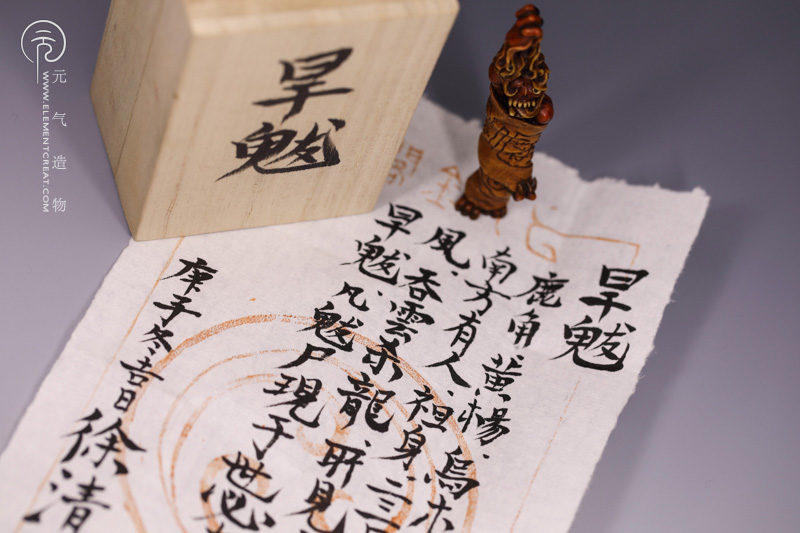 元气造物
WWW.ELEMENTCREAT.COM
旱魃
旱魃
鹿角.黃楊.烏木
南方有人.袒身.
風.吞雲杀龍.所見
旱魃.凡魃尸現于世必
庚子冬吉日徐清